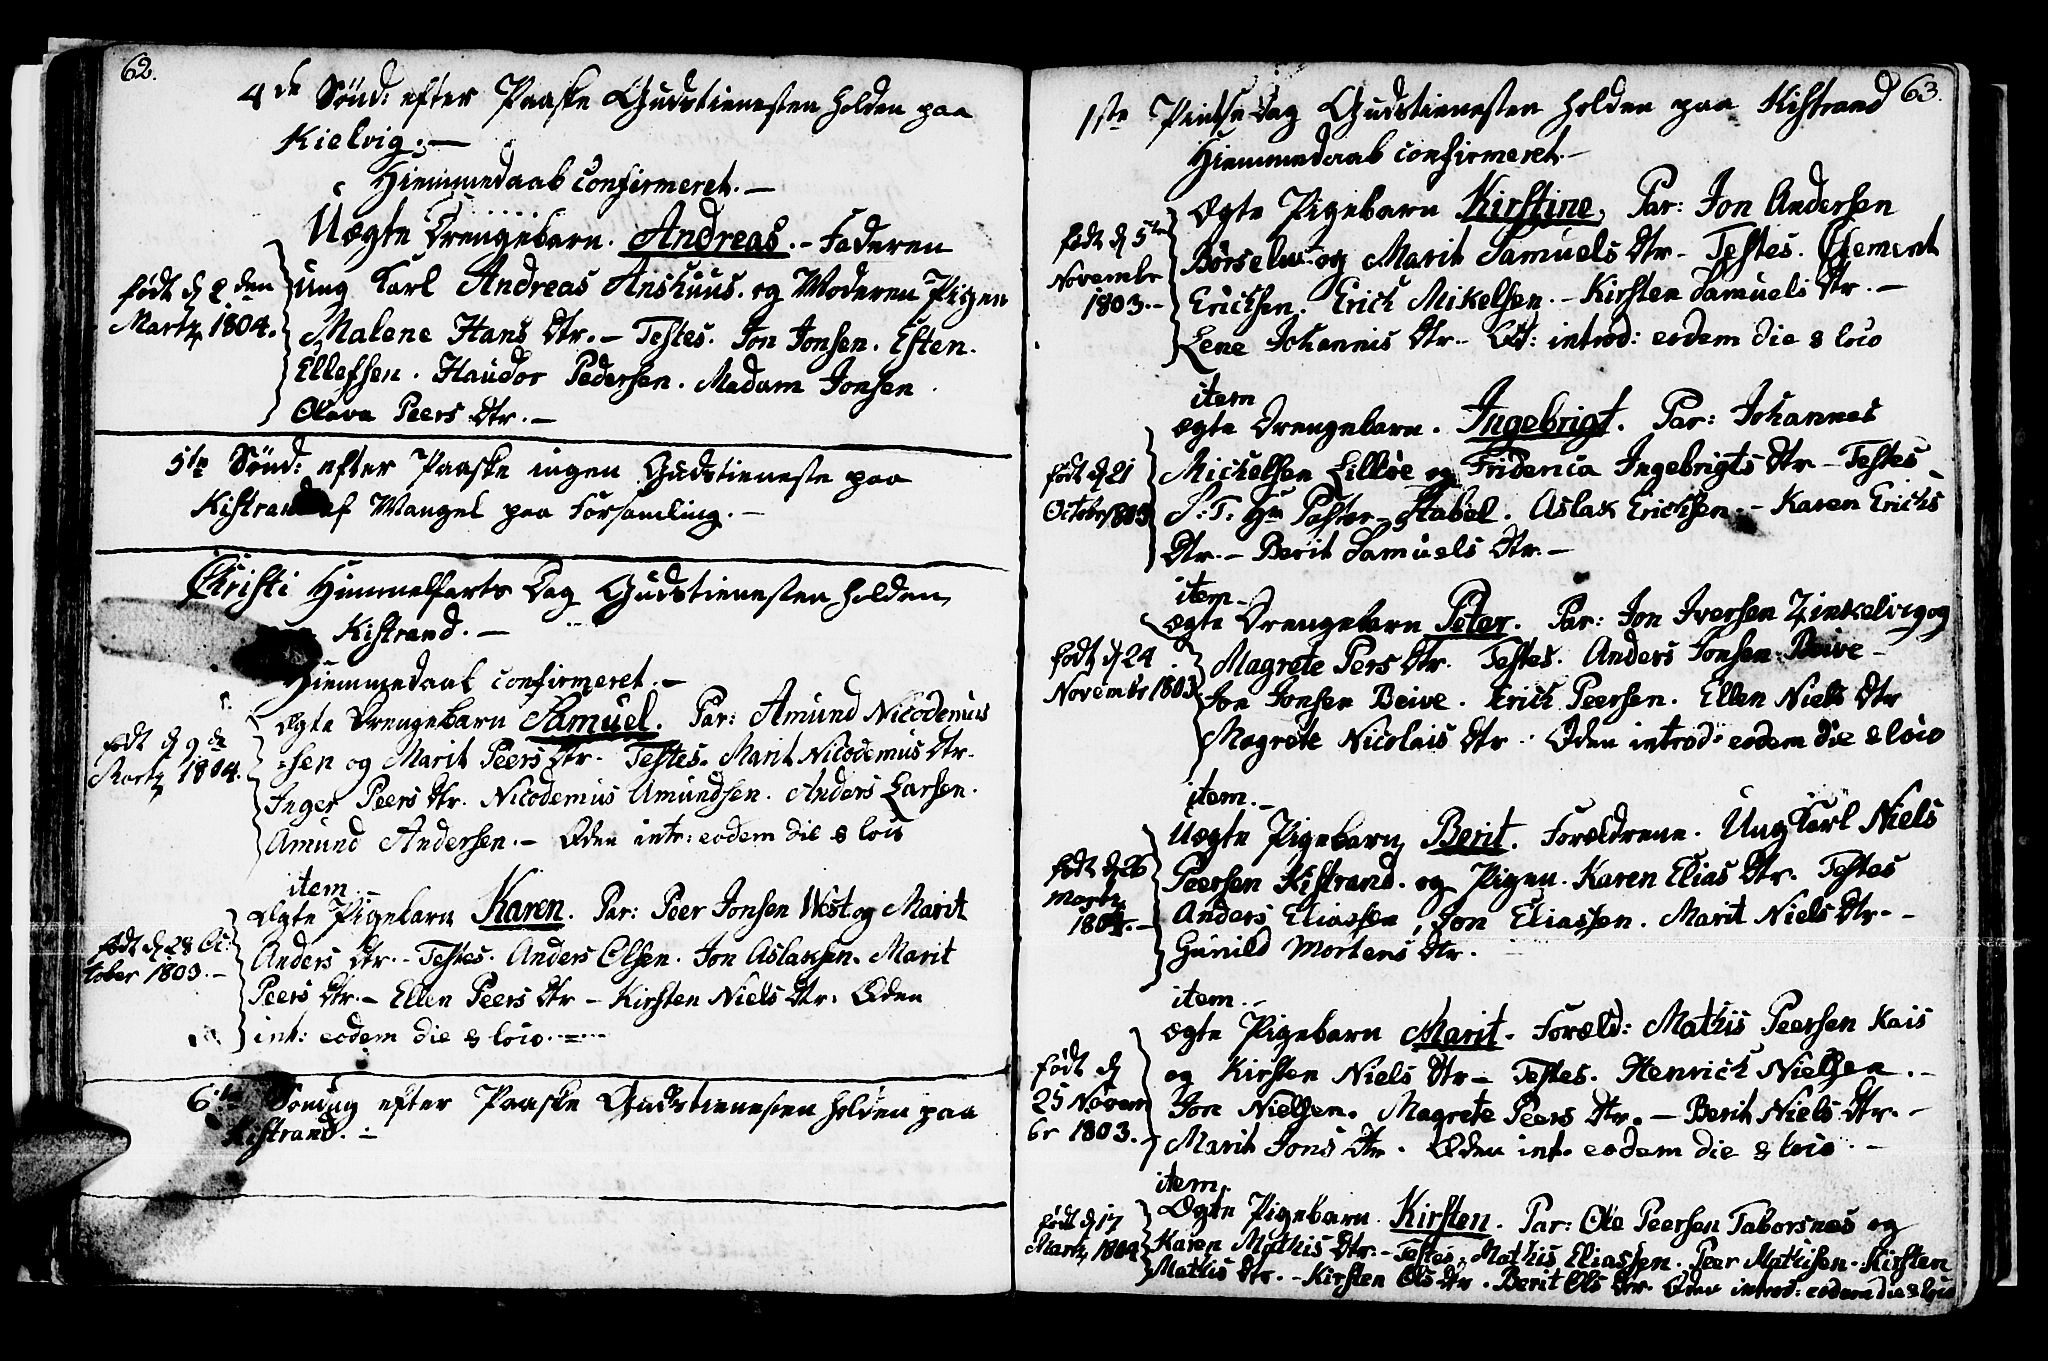 62.
4de Sönd: efter Paaske Gudstienesten holden paa
Kielvig. —
Hiemmedaab confirmeret. —
Uægte Drengebarn. Andreas. - Faderen
født d 2den
Martz 1804.
Ung Karl Andreas Anshuus. og Moderen Pigen
Malene Hans Dtr. — Testes. Jon Jonsen. Esten
Ellefsen. Haudor Pedersen. Madam Jonsen
Olava Peers Dtr. —
5te Sönd: efter Paaske ingen Gudstieneste paa
Kistrand af Mangel paa Forsamling. —
Christi Himmelfarts Dag Gudstienesten holden
Kistrand. —
Hiemmedaab confirmeret. —
født d 9de
Martz 1804.
Ægte Drengebarn Samuel. Par: Amund Nicodemus
-sen og Marit Peers Dtr. Testes. Marit Nicodemus Dtr.
Inger Peers Dtr. Nicodemus Amundsen. Anders Larsen.
Amund Andersen. — Oden intr: eodem die & loco
item. —
født d 28 Oc-
tober 1803. —
Ægte Pigebarn Karen. Par: Peer Jonsen West og Marit
Anders Dtr. - Testes. Anders Olsen. Jon Aslaksen. Marit
Peers Dtr. — Ellen Peers Dtr — Kirsten Niels Dtr. Oden
int: eodem die & loco.
6te Söndag efter Paaske Gudstienesten holden paa
Kistrand. —
63.
1ste Pintse Dag Gudstienesten holden paa Kistrand
Hiemmedaab confirmeret. —
født d 5te
Novembr
1803. —
Ægte Pigebarn Kirstine. Par: Jon Andersen
Börselw. og Marit Samuels Dtr — Testes. Clement
Ericksen. Erich Mikelsen. - Kirsten Samuels Dtr. —
Lene Johannis Dtr. introd: eodem die & loco
item
født d 21
Octobr 1803
ægte Drengebarn. Ingebrigt. Par: Johannes
Michelsen Lilløe og Fridenca Ingebrigts Dtr — Testes
S: T: Hr Pastor Stabel. Aslak Ericksen. - Karen Erichs
Dtr. — Berit Samuels Dtr. —
item —
født d 24
Novembr 1803
ægte Drengebarn Peter. Par: Jon Iversen Zinkelvig og
Magrete Pers Dtr. Testes. Anders Jonsen Beive —
Jon Jonsen Beive. Erich Peersen. Ellen Niels Dtr
Magrete Nicolais Dtr. Oden introd: eodem die & loco
item. —
født d 26
Martz
1804. —
Uægte Pigebarn Berit. Forældrene. Ung Karl Niels
Peersen Kistrand. og Pigen. Karen Elias Dtr. Testes
Anders Eliassen, Jon Eliassen. Marit Niels Dtr. —
Gunild Mortens Dtr.
item.
født d
25 Novem
br 1803. —
ægte Pigebarn Marit. Foræld: Mathis Peersen Kais
og Kirsten Niels Dtr — Testes. Henrich Nielsen. —
Jon Nielsen. Magrete Peers Dtr. — Berit Niels Dtr. —
Marit Jons Dtr. Oden int. eodem die & loco. —
item.
født d 17
Martz 1804
Ægte Pigebarn. Kirsten. Par: Ole Peersen Taborsnes og
Karen Mathis Dtr. — Testes. Mathis Eliassen. Peer Mathisen. Kirsten
Mathis Dtr. - Kirsten Ols Dtr. Berit Ols Dtr. Oden introd: eodem die & loco